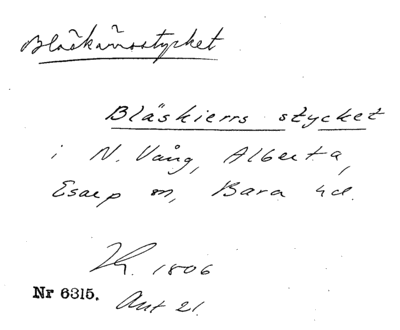 Blåskärrsstycket
Bläskierrs stycket
i N. Vång, Alberta,
Esarp sn, Bara hd.
1806
Nr 6315. Akt 21.